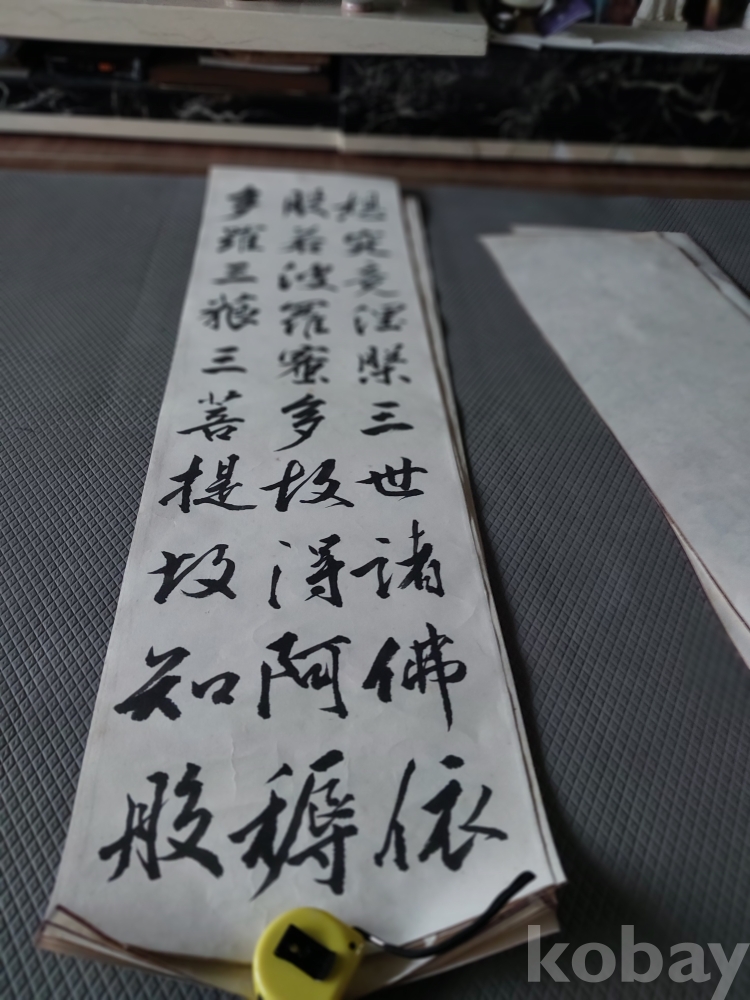 想究竟涅槃三世諸佛依
般若波羅蜜多故得阿耨
多羅三藐三菩提故知般
kobay